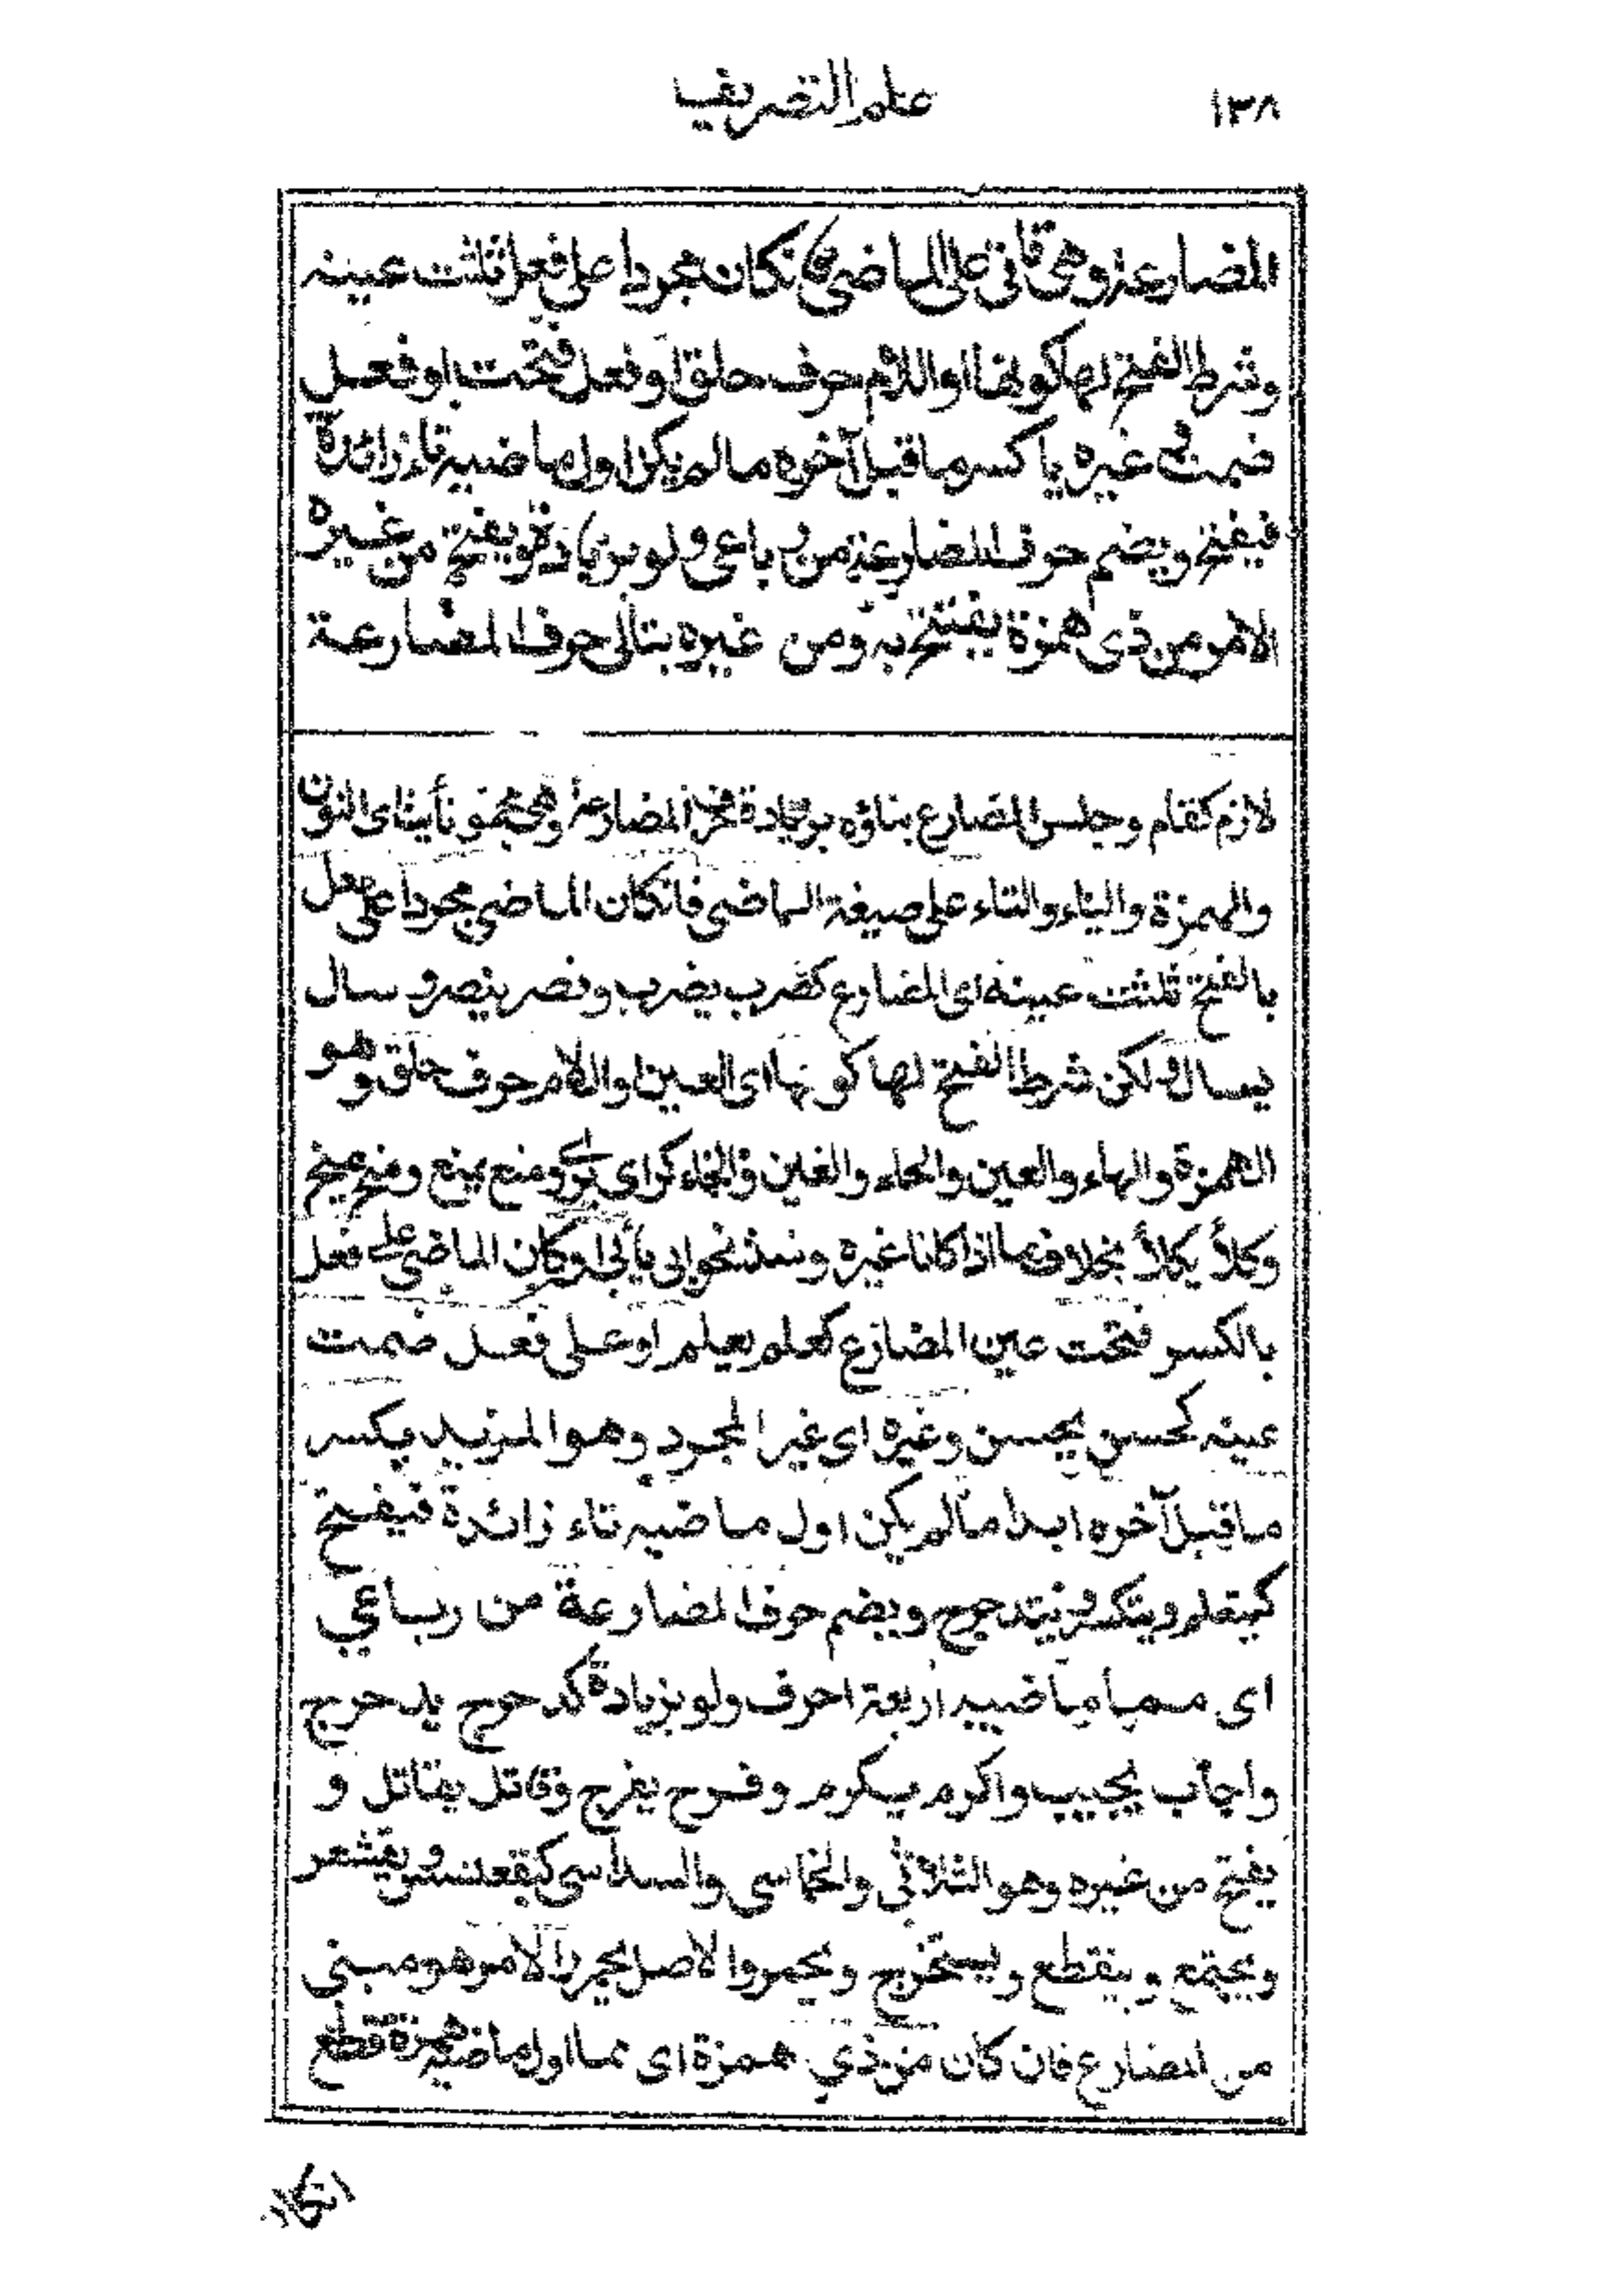 ١٣٨
علم التصريف
المضارعة وهى نأتى على الماضى فانكان مجردا على فعل ثلثت عينه
وشرط الفتح لها كونها او اللام حرف حلق او فعل فتحت او فعل
ضمت فى غيره يا كسر ما قبل آخره ما لم يكن اول ماضيه تاء زائدة
فيفتح ويضم حرف المضارعة من رباعى ولو بزيادة ويفتح من غيره
الامر من ذى همزة يفتتح به ومن غيره بتالى حرف المضارعة
لازم كقام وجلس المضارع بناؤه بزيادة المضارعة وهى نأيت اى النون
والهمزة والياء والتاء على صيغة الماضى فانكان الماضى مجردا على فعل
بالفتح ثلثت عينه اى المضارع كضرب يضرب ونصر ينصر وسال
يسال ولكن شرط الفتح لها كونها اى العين او اللام حرف حلق وهو
الهمزة والهاء والعين والحاء والغين والخاء ومنع يمنع
وكلأ يكلأ بخلاف ما اذا كانا غيره وشذ نحو ابى يأبى او كان الماضى على فعل
بالكسر فتحت عين المضارع كعلم يعلم او على فعل ضمت
عينه كحسن يحسن وغيره اى غير المجرد وهو المزيد يكسر
ما قبل آخره ابدا ما لم يكن اول ماضيه تاء زائدة فيفتح
كيتعلم ويتكسر ويتدحرج ويضم حرف المضارعة من رباعي
اى مما ماضيه اربعة احرف ولو بزيادة كدحرج يدحرج
واجاب يجيب واكرم يكرم وفرح يفرح وقاتل يقاتل و
يفتح من غيره وهو الثلاثى والخماسى والسداسى كيقعنسس ويقشعر
ويجتمع وينقطع ويستخرج ويحمر والاصل يحمرر الامر هو مبنى
من المضارع فان كان من ذي همزة اى مما اول ماضيه همزة قطع